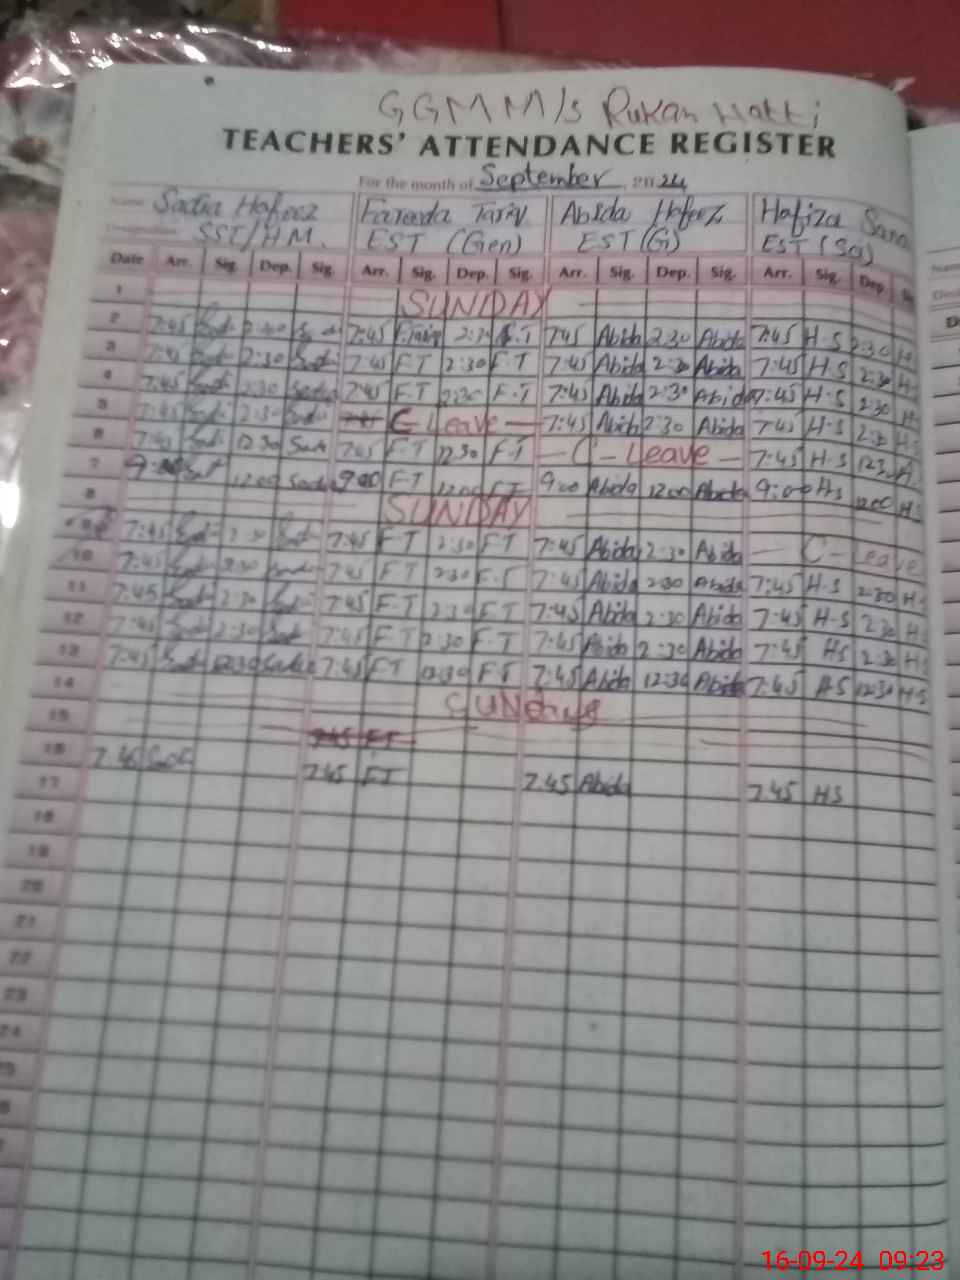 GGMM/s Rukan Hatti
TEACHERS' ATTENDANCE REGISTER
For the month of September 2024
Name Sadia Hafeez Fareeda Tariq Abida Hafeez Hafiza Sana
SST/HM. EST (Gen) EST (G) EST (Sc)
Date Arr. Sig. Dep. Sig. Arr. Sig. Dep. Sig. Arr. Sig. Dep. Sig. Arr. Sig. Dep.
1 SUNDAY
2 7:45 2:30 7:45 F.Tariq 2:30 F.T 7:45 Abida 2:30 Abida 7:45 H-S 2:30 H-
3 7:45 2:30 7:45 F.T 2:30 F.T 7:45 Abida 2:30 Abida 7:45 H-S 2:30 H-
4 7:45 2:30 Sadia 7:45 F.T 2:30 F.T 7:45 Abida 2:30 Abida 7:45 H-S 2:30 H-
5 7:45 2:30 C Leave — 7:45 Abida 2:30 Abida 7:45 H-S 2:30 H-
6 7:45 12:30 7:45 F.T 12:30 F.T — C - Leave — 7:45 H-S 12:30
7 9:00 12:00 9:00 F.T 12:00 F.T 9:00 Abida 12:00 Abida 9:00 HS 12:00 H-
8 SUNDAY
9 7:45 2:30 7:45 F.T 2:30 F.T 7:45 Abida 2:30 Abida — C - Leave
10 7:45 2:30 7:45 F.T 2:30 F.T 7:45 Abida 2:30 Abida 7:45 H-S 2:30 H-
11 7:45 2:30 7:45 F.T 2:30 F.T 7:45 Abida 2:30 Abida 7:45 H-S 2:30 H-
12 7:45 2:30 7:45 F.T 2:30 F.T 7:45 Abida 2:30 Abida 7:45 HS 2:30 HS
13 7:45 12:30 7:45 F.T 12:30 F.T 7:45 Abida 12:30 Abida 7:45 H-S 12:30 H-S
14
15
16 7:45 7:45 FT 7:45 Abida 7:45 HS
17
18
19
20
21
22
23
24
16-09-24 09:23